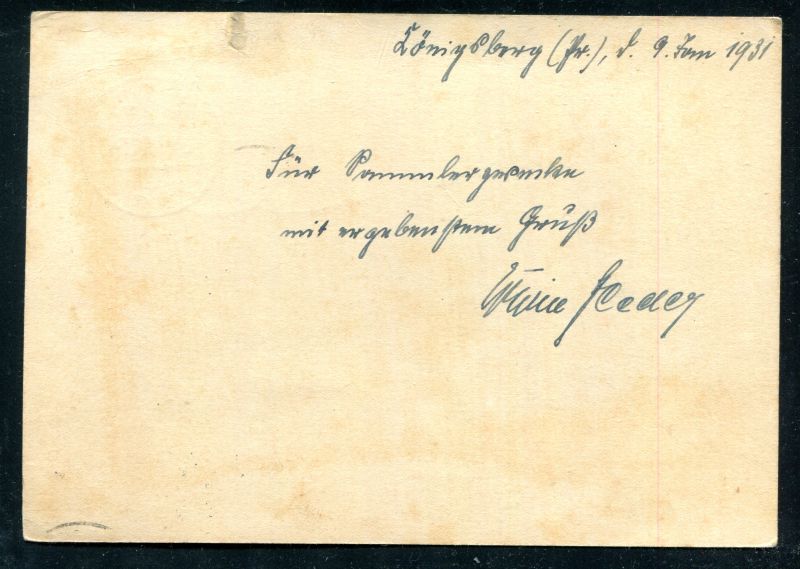 Königsberg (Pr.), d. 9. Jan 1931
Für Sammlerzwecke
mit ergebenstem Gruß